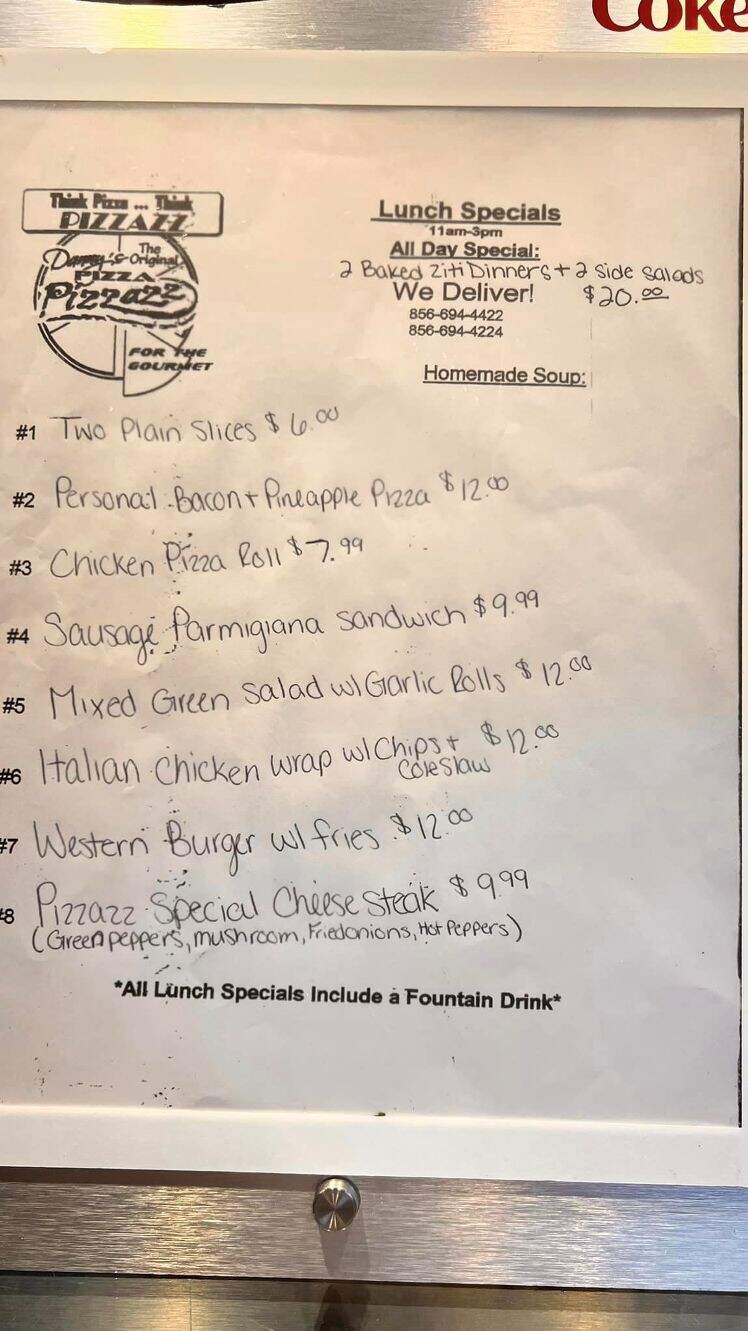 Coke
Think Pizza ... Think
PIZZAZZ
The
Danny's Original
PIZZA
Pizzazz
FOR THE
GOURMET
Lunch Specials
11am-3pm
All Day Special:
2 Baked Ziti Dinners + 2 Side Salads
We Deliver! $20.00
856-694-4422
856-694-4224
Homemade Soup:
#1 Two Plain Slices $6.00
#2 Personal Bacon + Pineapple Pizza $12.00
#3 Chicken Pizza Roll $7.99
#4 Sausage Parmigiana Sandwich $9.99
#5 Mixed Green Salad w/ Garlic Rolls $12.00
#6 Italian Chicken Wrap w/ Chips + $12.00
Coleslaw
#7 Western Burger w/ fries $12.00
#8 Pizzazz Special Cheese Steak $9.99
(Green peppers, mushroom, Fried onions, Hot Peppers)
*All Lunch Specials Include a Fountain Drink*